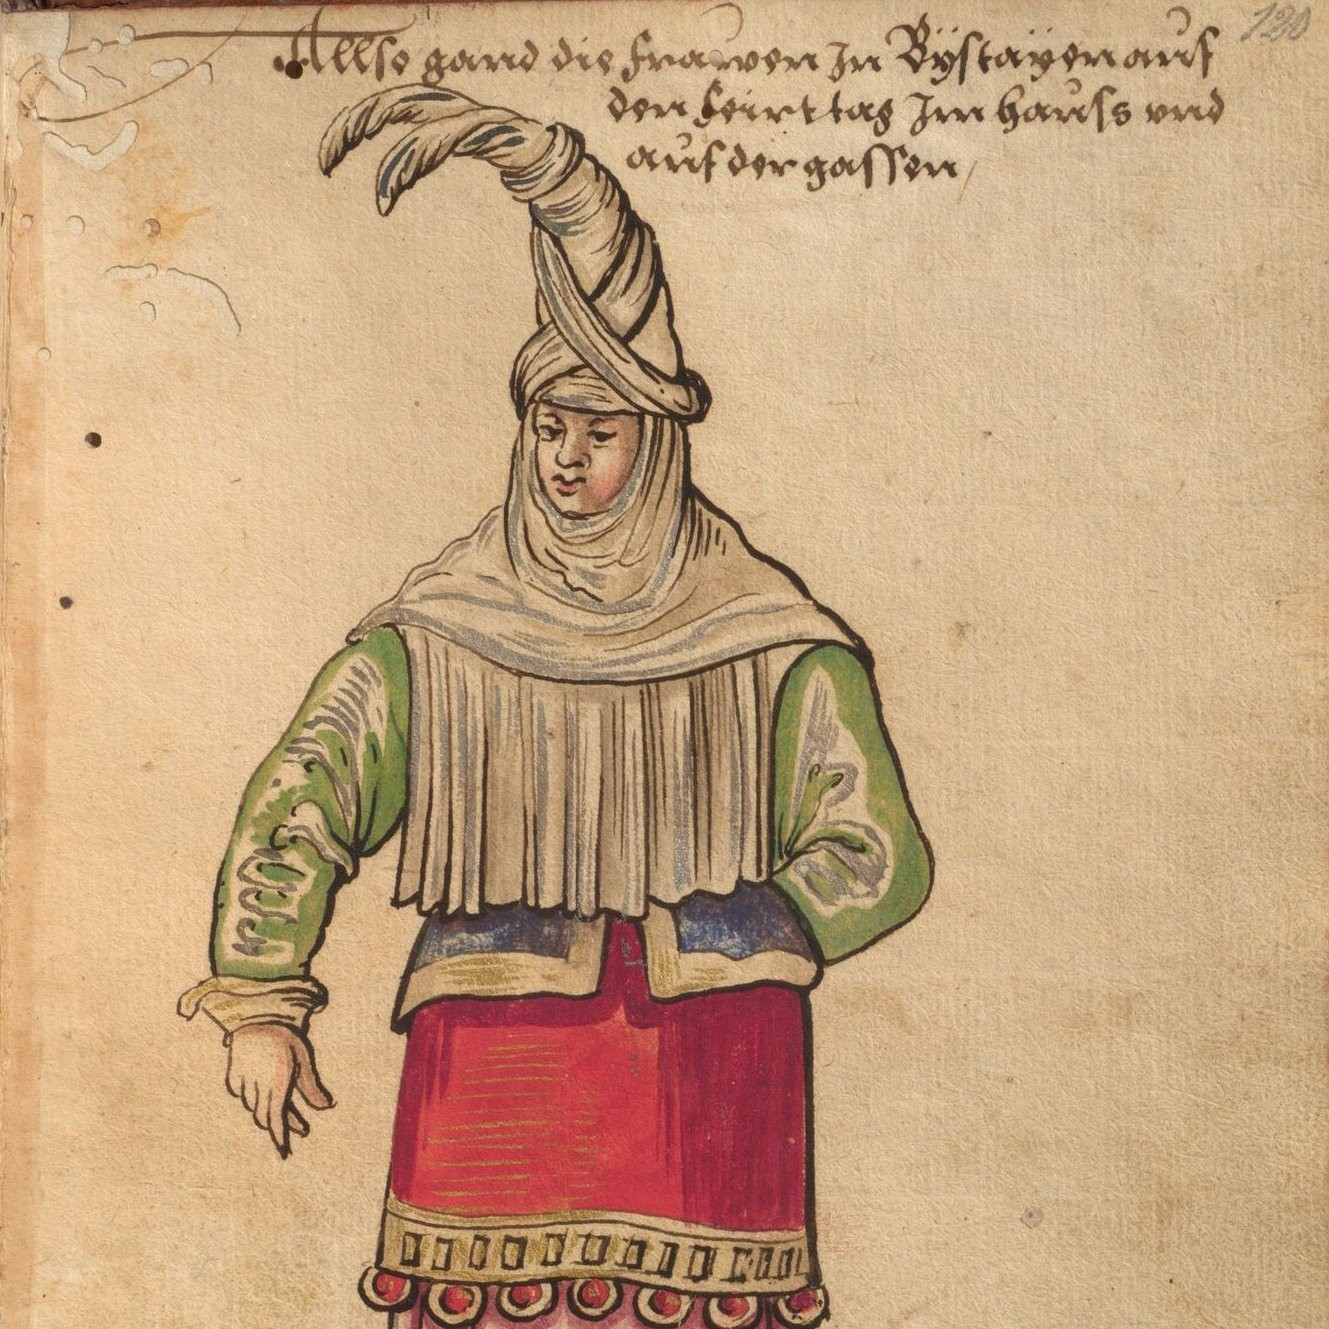 Allso gand die frawen In Bÿstaÿen auf
den feirttag Im hauss vnd
auf der gassen
120